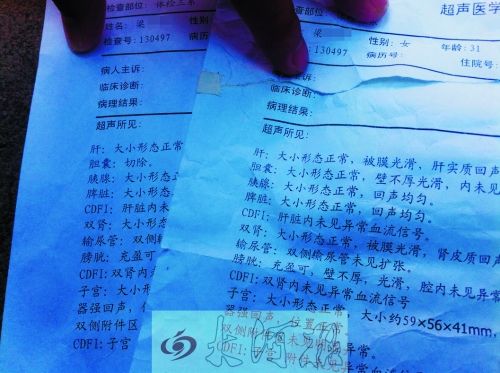 检查部位: 体检三系
姓名: 梁
检查号: 130497
病人主诉:
临床诊断:
病理结果:
超声所见:
肝: 大小形态正常
胆囊: 切除。
胰腺: 大小形态正
脾脏: 大小形态正
CDFI: 肝脏内未见
双肾: 大小形态
输尿管: 双侧输
膀胱: 充盈可
CDFI: 双肾内
子宫: 大小形
器强回声,
双侧附件区
CDFI: 子宫
超声医学
检查部位:
梁
性别: 女
年龄: 31
130497
病历号:
住院号:
病人主诉:
临床诊断:
病理结果:
超声所见:
肝: 大小形态正常, 被膜光滑, 肝实质回声
胆囊: 大小形态正常, 壁不厚光滑, 内未见
胰腺: 大小形态正常, 回声均匀。
脾脏: 大小形态正常, 回声均匀。
CDFI: 肝脏内未见异常血流信号。
双肾: 大小形态正常, 被膜光滑, 肾皮质回声
输尿管: 双侧输尿管未见扩张。
膀胱: 充盈可, 壁不厚, 光滑, 腔内未见异常
CDFI: 双肾内未见异常血流信号
子宫: 大小形态正常, 大小约59×56×41mm,
器强回声, 位置正常
双侧附件区未见明显异
CDFI: 子宫、附件未见异常